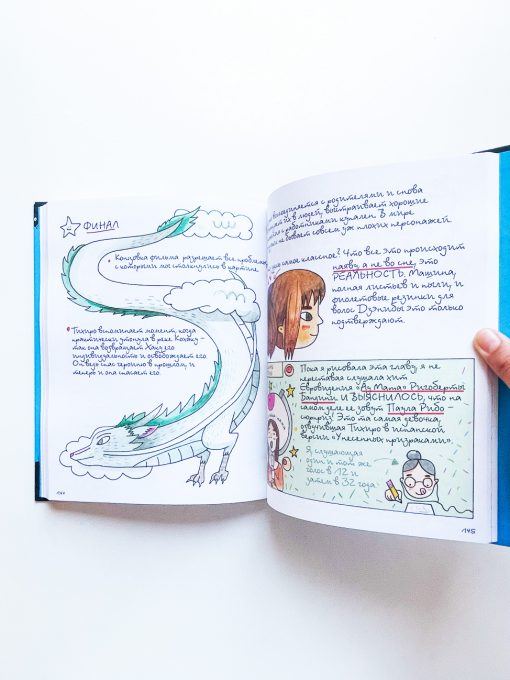 ФИНАЛ
Концовка фильма разрешает все проблемы,
с которыми мы столкнулись в картине.
Тихиро вспоминает момент, когда
практически утонула в реке Кохаку –
так она возвращает Хаку его
индивидуальность и освобождает его.
Он ведь спас героиню в прошлом, и
теперь и она спасает его.
144
с родителями и снова
их в людей, выстраивает хорошие
с работниками купален. В мире
не бывает совсем уж плохих персонажей.
самое классное? Что все это происходит
наяву, а не во сне, это
РЕАЛЬНОСТЬ. Машина,
полная листьев и пыли, и
фиолетовые резинки для
волос Дзэнибы это только
подтверждают.
Пока я рисовала эту главу, я не
переставая слушала хит
Евровидения «Ay Mama» Ригоберты
Бандини И ВЫЯСНИЛОСЬ, что на
самом деле ее зовут Паула Рибо –
сюрприз! Это та самая девочка,
озвучившая Тихиро в испанской
версии «Унесенных призраками».
Я, слушающая
один и тот же
голос в 12 и
затем в 32 года
145